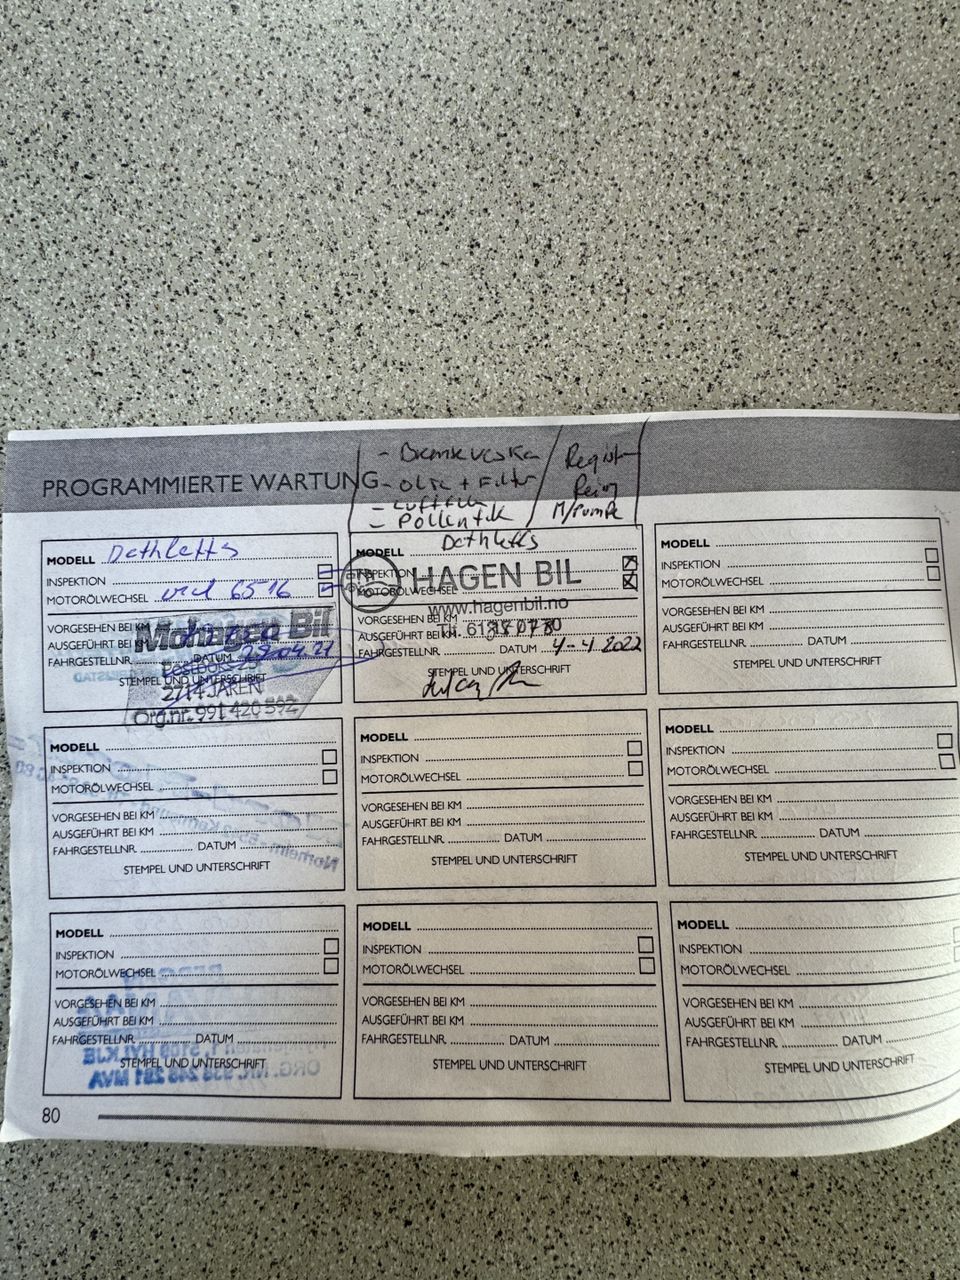 - Bremsevæske
- Olje + Filter
- Luftfilter
- Pollenfilt
Register
Reim
m/Pumpe
PROGRAMMIERTE WARTUNG
MODELL Dethleffs
INSPEKTION
MOTORÖLWECHSEL ved 6516
VORGESEHEN BEI KM
AUSGEFÜHRT BEI KM
FAHRGESTELLNR. DATUM 29.04.21
STEMPEL UND UNTERSCHRIFT
Mohagen Bil
Postboks 25
2714 JAREN
Org.nr. 991 420 592
MODELL Dethleffs
INSPEKTION
MOTORÖLWECHSEL
HAGEN BIL
www.hagenbil.no
VORGESEHEN BEI KM
AUSGEFÜHRT BEI KM
FAHRGESTELLNR. DATUM 4-4 2022
STEMPEL UND UNTERSCHRIFT
MODELL
INSPEKTION
MOTORÖLWECHSEL
VORGESEHEN BEI KM
AUSGEFÜHRT BEI KM
FAHRGESTELLNR. DATUM
STEMPEL UND UNTERSCHRIFT
MODELL
INSPEKTION
MOTORÖLWECHSEL
VORGESEHEN BEI KM
AUSGEFÜHRT BEI KM
FAHRGESTELLNR. DATUM
STEMPEL UND UNTERSCHRIFT
MODELL
INSPEKTION
MOTORÖLWECHSEL
VORGESEHEN BEI KM
AUSGEFÜHRT BEI KM
FAHRGESTELLNR. DATUM
STEMPEL UND UNTERSCHRIFT
MODELL
INSPEKTION
MOTORÖLWECHSEL
VORGESEHEN BEI KM
AUSGEFÜHRT BEI KM
FAHRGESTELLNR. DATUM
STEMPEL UND UNTERSCHRIFT
MODELL
INSPEKTION
MOTORÖLWECHSEL
VORGESEHEN BEI KM
AUSGEFÜHRT BEI KM
FAHRGESTELLNR. DATUM
STEMPEL UND UNTERSCHRIFT
MODELL
INSPEKTION
MOTORÖLWECHSEL
VORGESEHEN BEI KM
AUSGEFÜHRT BEI KM
FAHRGESTELLNR. DATUM
STEMPEL UND UNTERSCHRIFT
MODELL
INSPEKTION
MOTORÖLWECHSEL
VORGESEHEN BEI KM
AUSGEFÜHRT BEI KM
FAHRGESTELLNR. DATUM
STEMPEL UND UNTERSCHRIFT
80